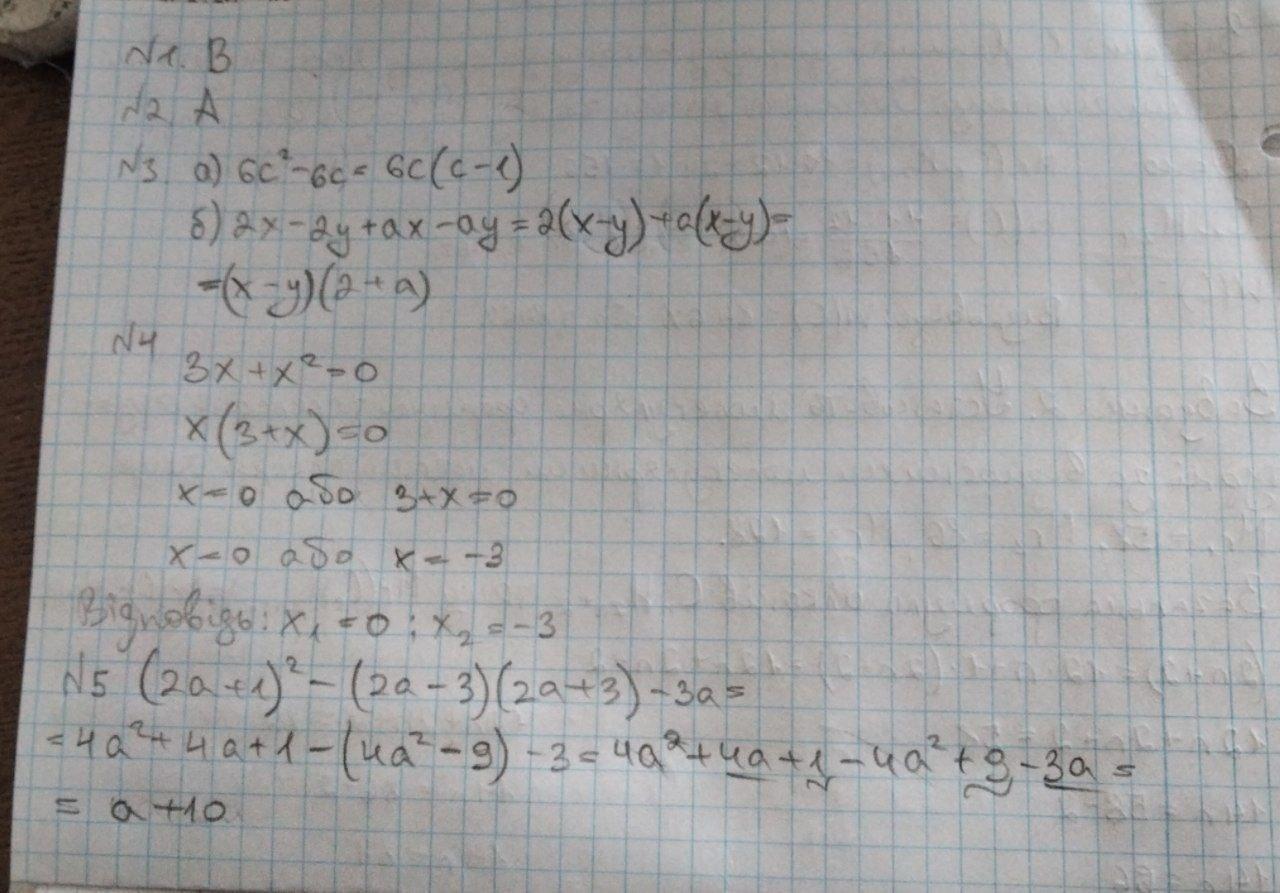 №1. В
№2 А
№3 а) 6c²-6c= 6c(c-1)
б) 2x-2y+ax-ay=2(x-y)+a(x-y)=
=(x-y)(2+a)
№4
3x+x²=0
x(3+x)=0
x=0 або 3+x=0
x=0 або x=-3
Відповідь: x₁=0; x₂=-3
№5 (2a+1)²-(2a-3)(2a+3)-3a=
=4a²+4a+1-(4a²-9)-3=4a²+4a+1-4a²+9-3a=
= a+10